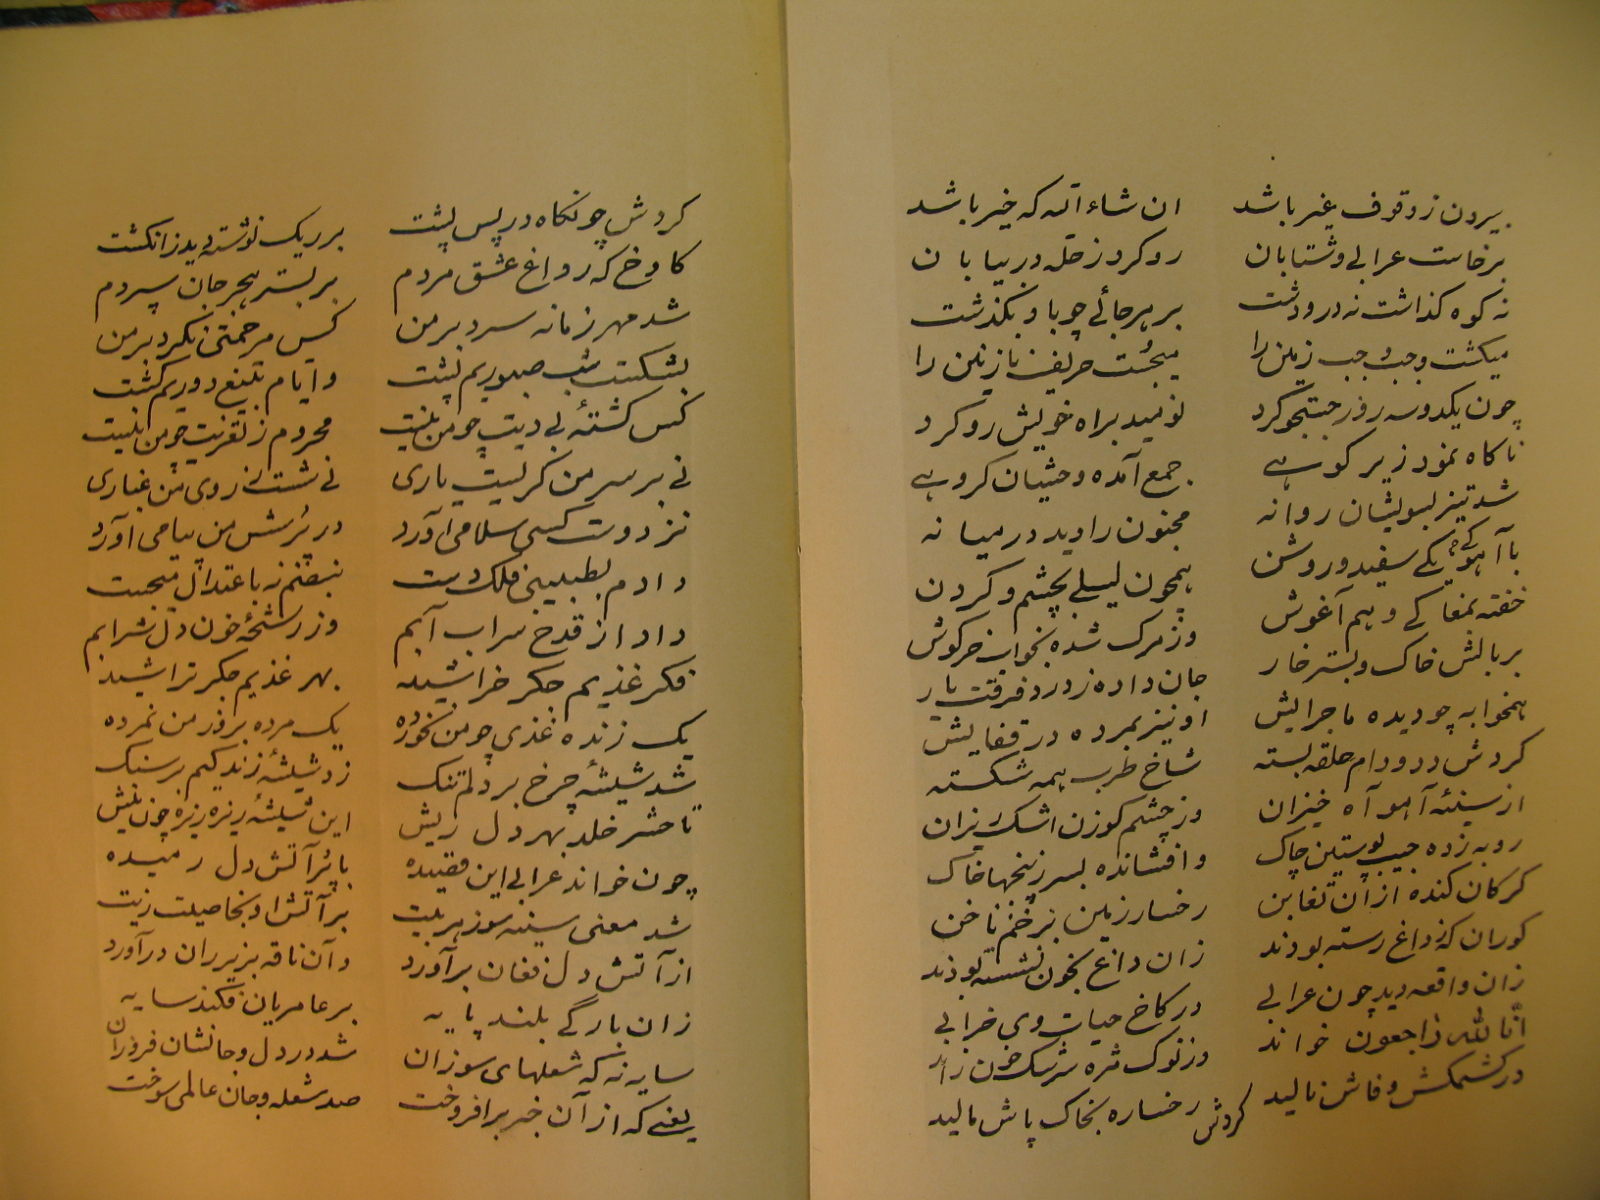 بیرون ز وقوف غیر باشد ان شاء الله که خیر باشد
برخاست عرابی و شتابان رو کرد ز حله در بیابان
نه کوه گذاشت نه در و دشت بر هر جائے چو باد بگذشت
میگشت وجب وجب زمین را میجُست حریف نازنین را
چون یکدوسه روز جستجو کرد نومید براه خویش رو کرد
ناگاه نمود زیر کوهے جمع آمده وحشیان گروهے
شد تیز بسویشان روانه مجنون را دید در میانه
با آهوکے سفید و روشن همچون لیلے بچشم و گردن
خفته بمغاکے و هم آغوش وز مرگ شده بخواب خرگوش
بر بالش خاک و بستر خار جان داده ز درد فرقت یار
همخوابه چو دیده ماجرایش او نیز بمرده در قفایش
گردش دد و دام حلقه بسته شاخ طرب همه شکسته
از سینهٔ آهو آه خیزان وز چشم گوزن اشک ریزان
روبه زده جیب پوستین چاک وافشانده بسر ز پنجها خاک
گرگان کنده از آن تغابن رخسار زمین بزخم ناخن
گوران که ز داغ رسته بودند زان داغ بخون نشسته بودند
زان واقعه دید چون عرابی در کاخ حیات وی خرابی
انّا لله راجعون خواند وز نوک مژه سرشک خون راند
در کشمکش وفاش نالید گردش رخساره بخاک پاش مالید
گردش چو نگاه در پس پشت بر ریگ نوشته دید ز انگشت
کاوخ که ز داغ عشق مردم بر بستر هجر جان سپردم
شد مهر زمانه سرد بر من کس مرحمتی نکرد بر من
بشکست شب صبوریم پشت و ایام بتیغ دوریم کشت
کس کشتهٔ بی دیت چو من نیست محروم ز تعزیت چو من نیست
نے بر سر من گریست یاری نے شست ز روی من غباری
نز دوست کسی سلامی آورد در پُرسش من پیامی آورد
دادم بطبیبی فلک دست نبضم ز اعتدال میجست
داد از قدح سراب آبم وز رشحهٔ خون دل شرابم
فکر غذیم جگر خراشید بهر غذیم جگر تراشید
یک زنده غذی چو من نخورده یک مرده بروز من نمرده
شد شیشهٔ چرخ بر دلم تنگ زد شیشهٔ زندگیم بر سنگ
تا حشر خلد بهر دل ریش این شیشهٔ ریزه ریزه چون نیش
چون خواند عرابی این قصیده با پُر آتش دل رمیده
شد معنی سینه سوز هر بیت بر آتش او بخاصیت زیت
از آتش دل فغان برآورد و آن ناقه بزیر ران درآورد
زان بارگے بلند پایه بر عامریان فکند سایه
سایه نه که شعلهای سوزان شد در دل و جانشان فروزان
یعنے که از آن خبر برافروخت صد شعله و جان عالمی سوخت